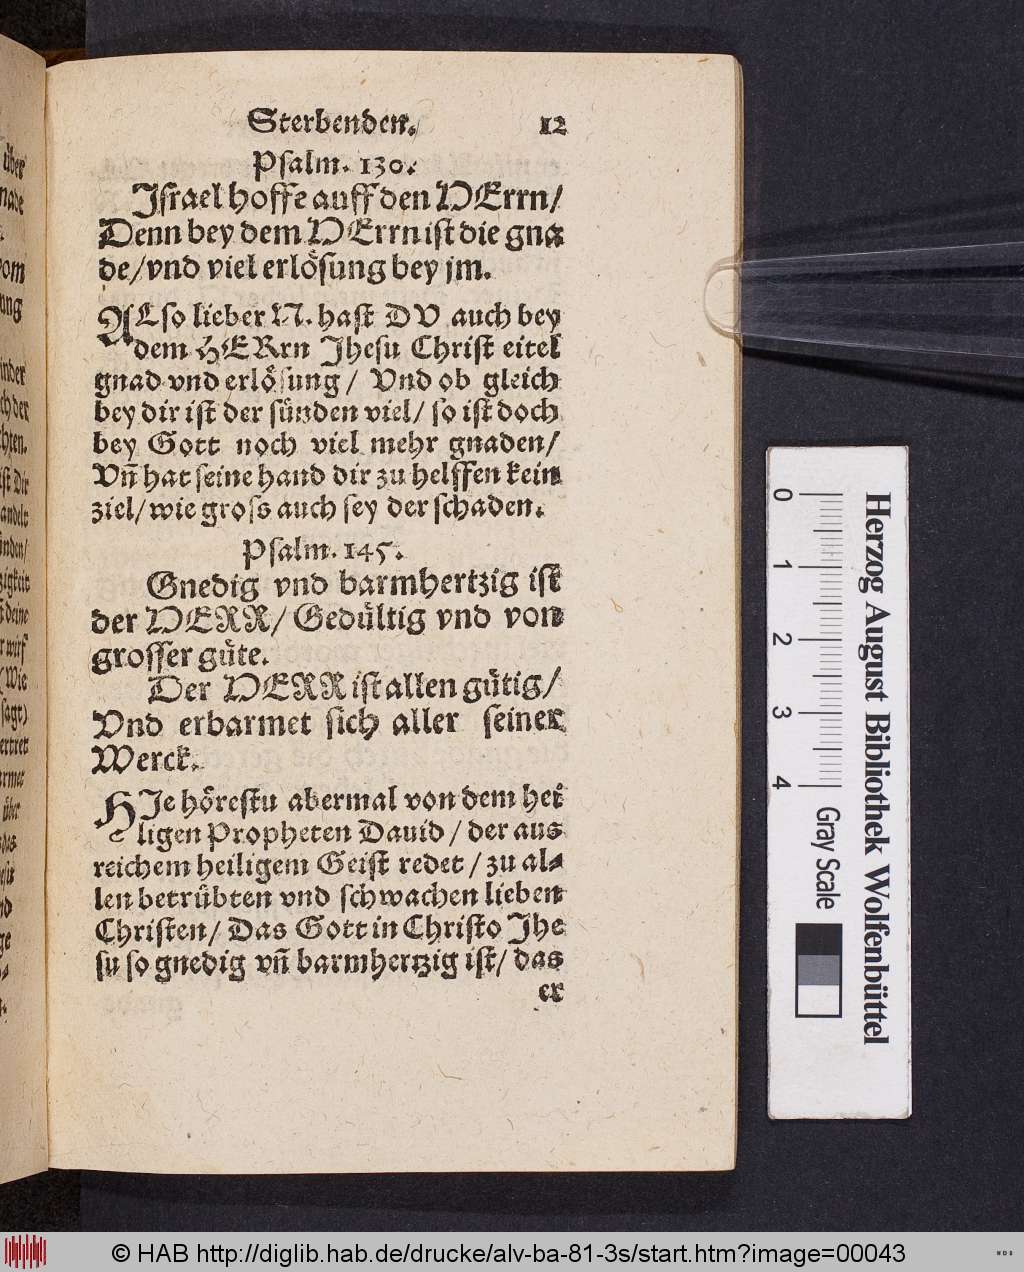 Sterbenden. 12
Psalm. 130.
Israel hoffe auff den HErrn/
Denn bey dem HErrn ist die gna
de/vnd viel erlösung bey jm.
ALso lieber N. hast DV auch bey
dem HERrn Jhesu Christ eitel
gnad vnd erlösung/ Vnd ob gleich
bey dir ist der sünden viel/ so ist doch
bey Gott noch viel mehr gnaden/
Vn̄ hat seine hand dir zu helffen kein
ziel/wie gross auch sey der schaden.
Psalm. 145.
Gnedig vnd barmhertzig ist
der HERR/ Gedültig vnd von
grosser güte.
Der HERR ist allen gütig/
Vnd erbarmet sich aller seiner
Werck.
HJe hörestu abermal von dem hei
ligen Propheten Dauid/ der aus
reichem heiligem Geist redet/ zu al-
len betrübten vnd schwachen lieben
Christen/ Das Gott in Christo Jhe
su so gnedig vn̄ barmhertzig ist/ das
er
Herzog August Bibliothek Wolfenbüttel
0 1 2 3 4 Gray Scale
© HAB http://diglib.hab.de/drucke/alv-ba-81-3s/start.htm?image=00043